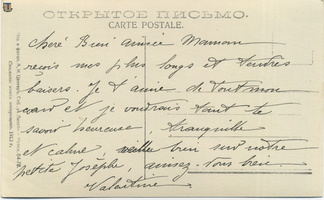 ОТКРЫТОЕ ПИСЬМО.
CARTE POSTALE.
Chéré Bien aimée Maman
reçois mes plus longs et tendres
baisers. Je t'aime de tout mon
et je voudrais tant te
savoir heureuse, tranquille
et calme, veille bien sur notre
petite Josèphe, aimez-vous bien
Valentine